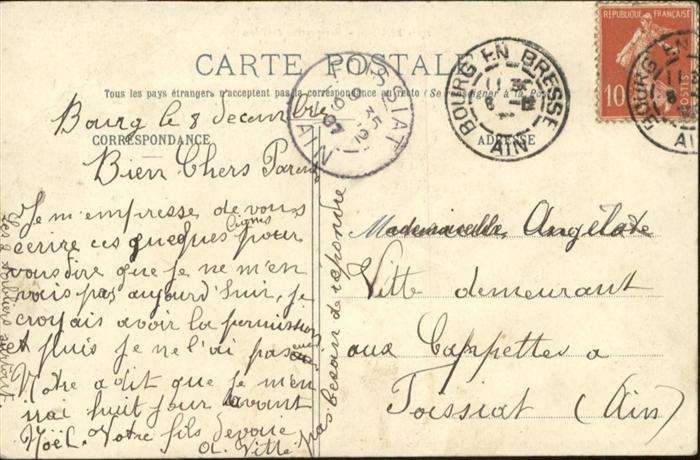 CARTE POSTALE
Tous les pays étrangers n'acceptent pas la correspondance au recto (Se renseigner à la Poste)
CORRESPONDANCE
ADRESSE
Bourg le 8 decembre
Bien Chers Parents
Je m'empresse de vous
écrire ces quequés lignes pour
vous dire que je ne m'en
vais pas aujourd'huir, je
croyais avoir la permission
et puis je ne l'ai pas eue
Votre a dit que je m'en
irai huit jour avant
Noël. Votre fils devoue
A. Vitte
pas besoin de répondre
Mademoiselle Angèle
Vitte demeurant
aux Cappettes a
Toissiat (Ain)
BOURG EN BRESSE
AIN
BOURG EN
AIN
REPUBLIQUE FRANÇAISE
10
POSTES